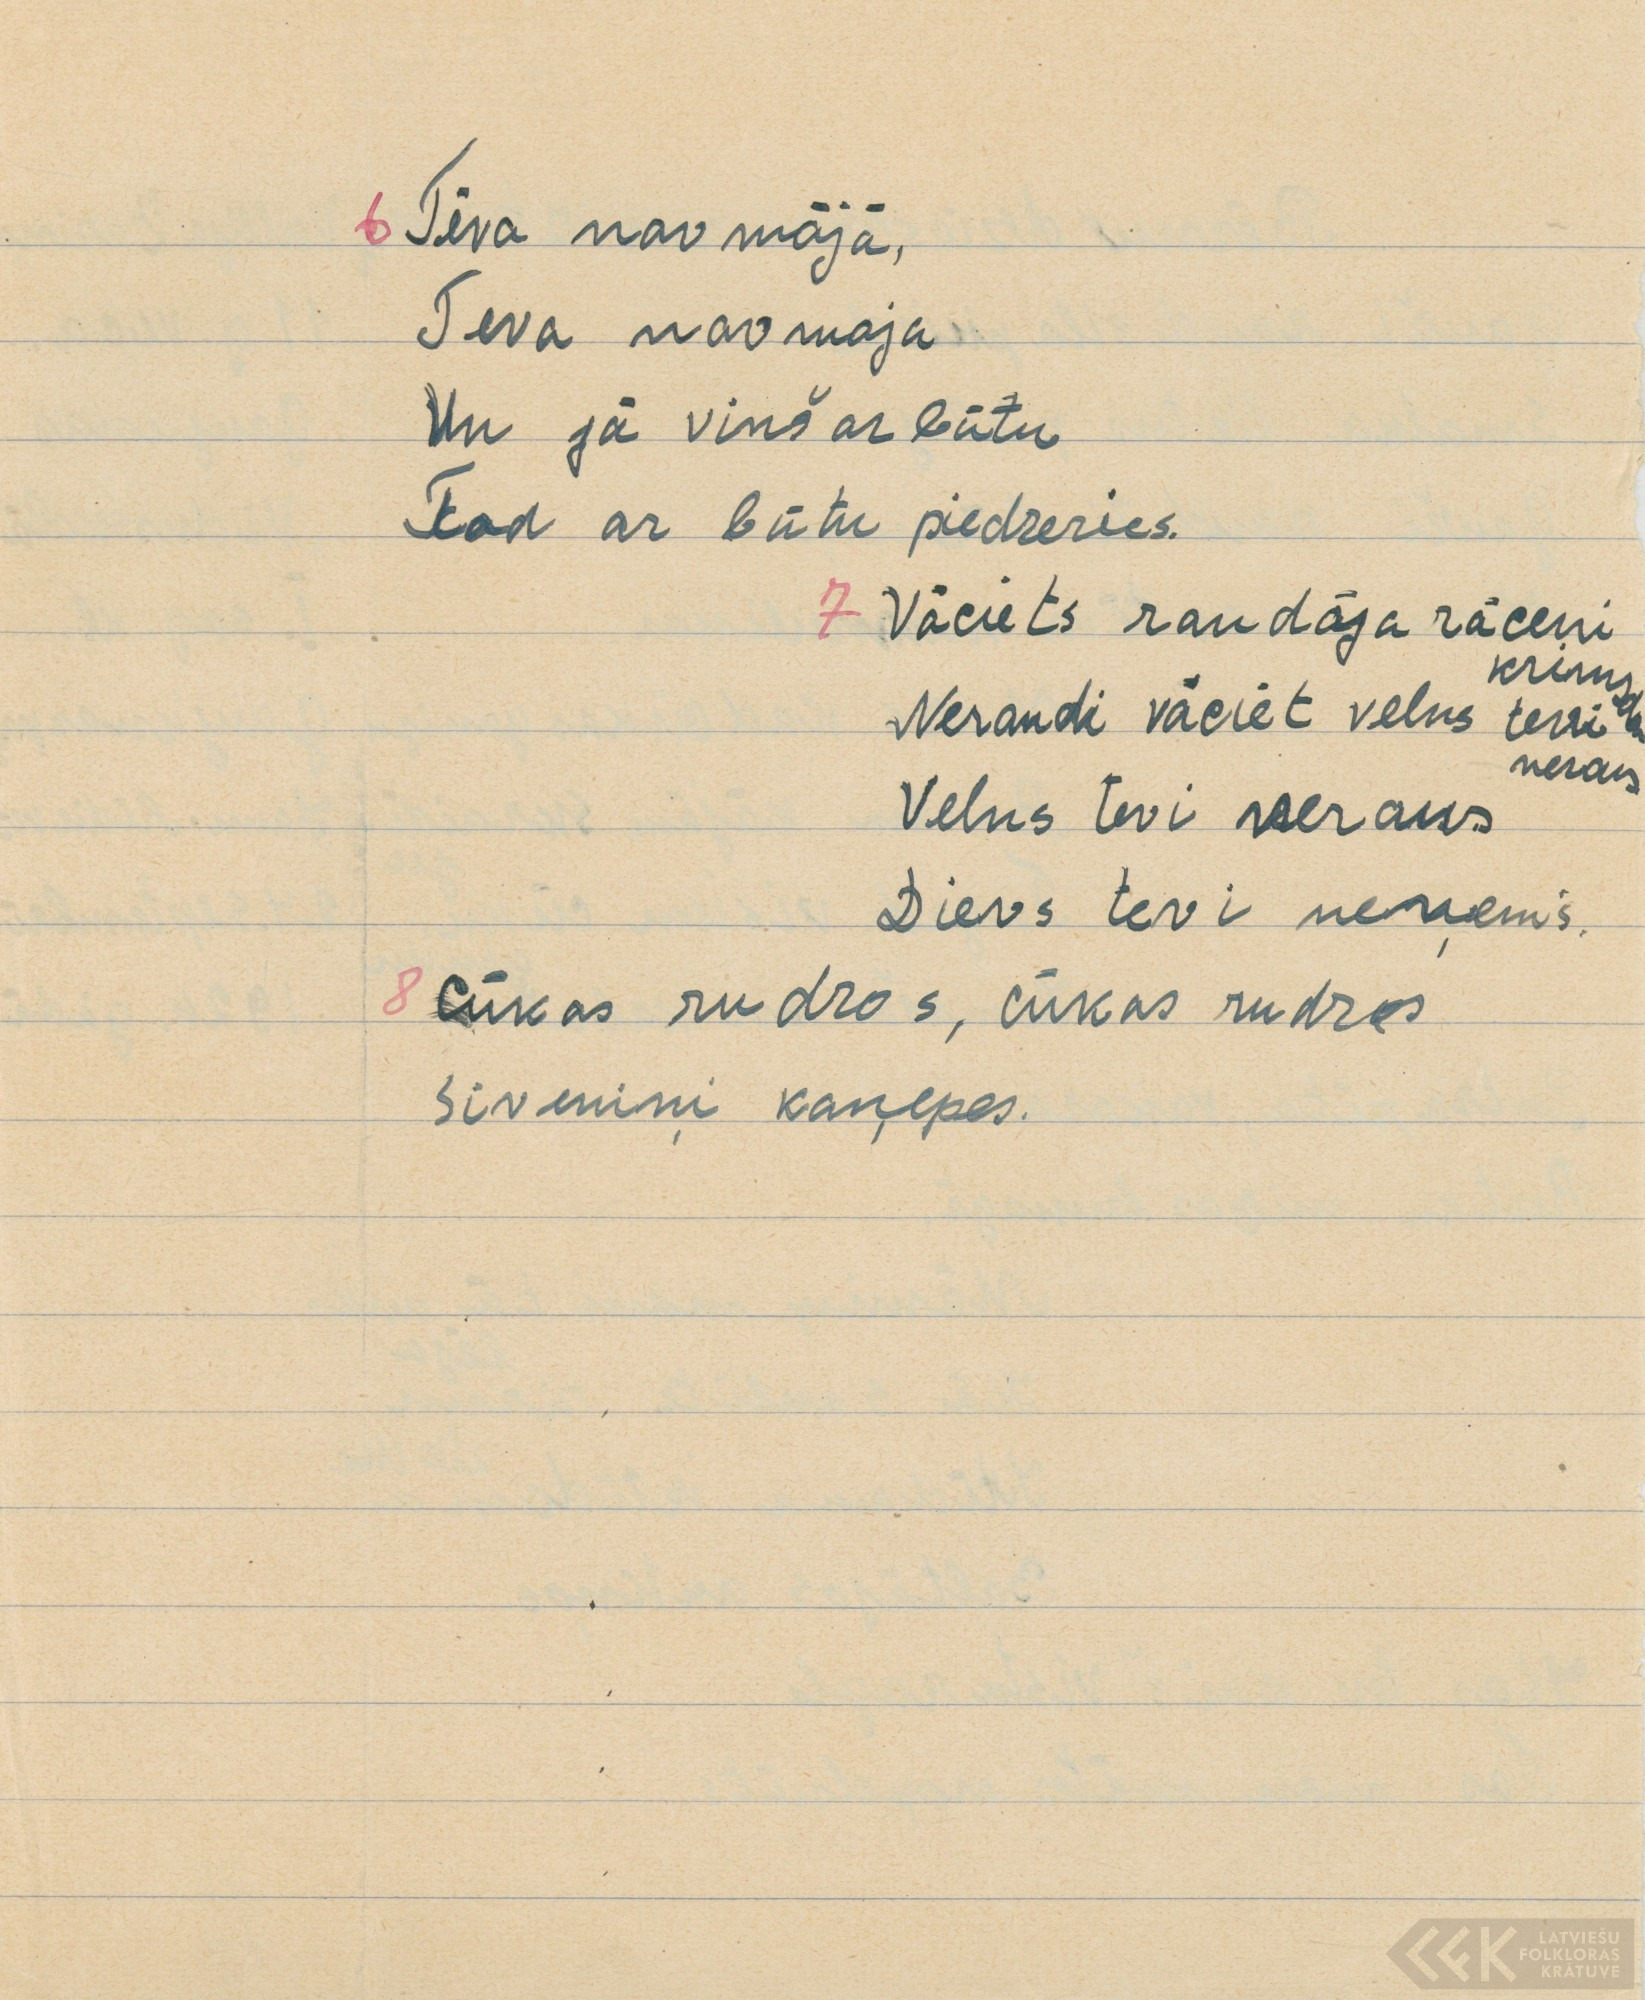 6 Tēva nav mājā,
Teva nav maja
Un jā vinš ar būtu
Tad ar būtu piedzeries.
7 Vāciets raudāja rāceni
krimz
Neraudi vāciet velns tevi
neraus
Velns tevi neraus
Dievs tevi neņems.
8 Cūkas rudzos, cūkas rudzos
Siveniņi kaņepes.
LATVIEŠU
FOLKLORAS
KRĀTUVE